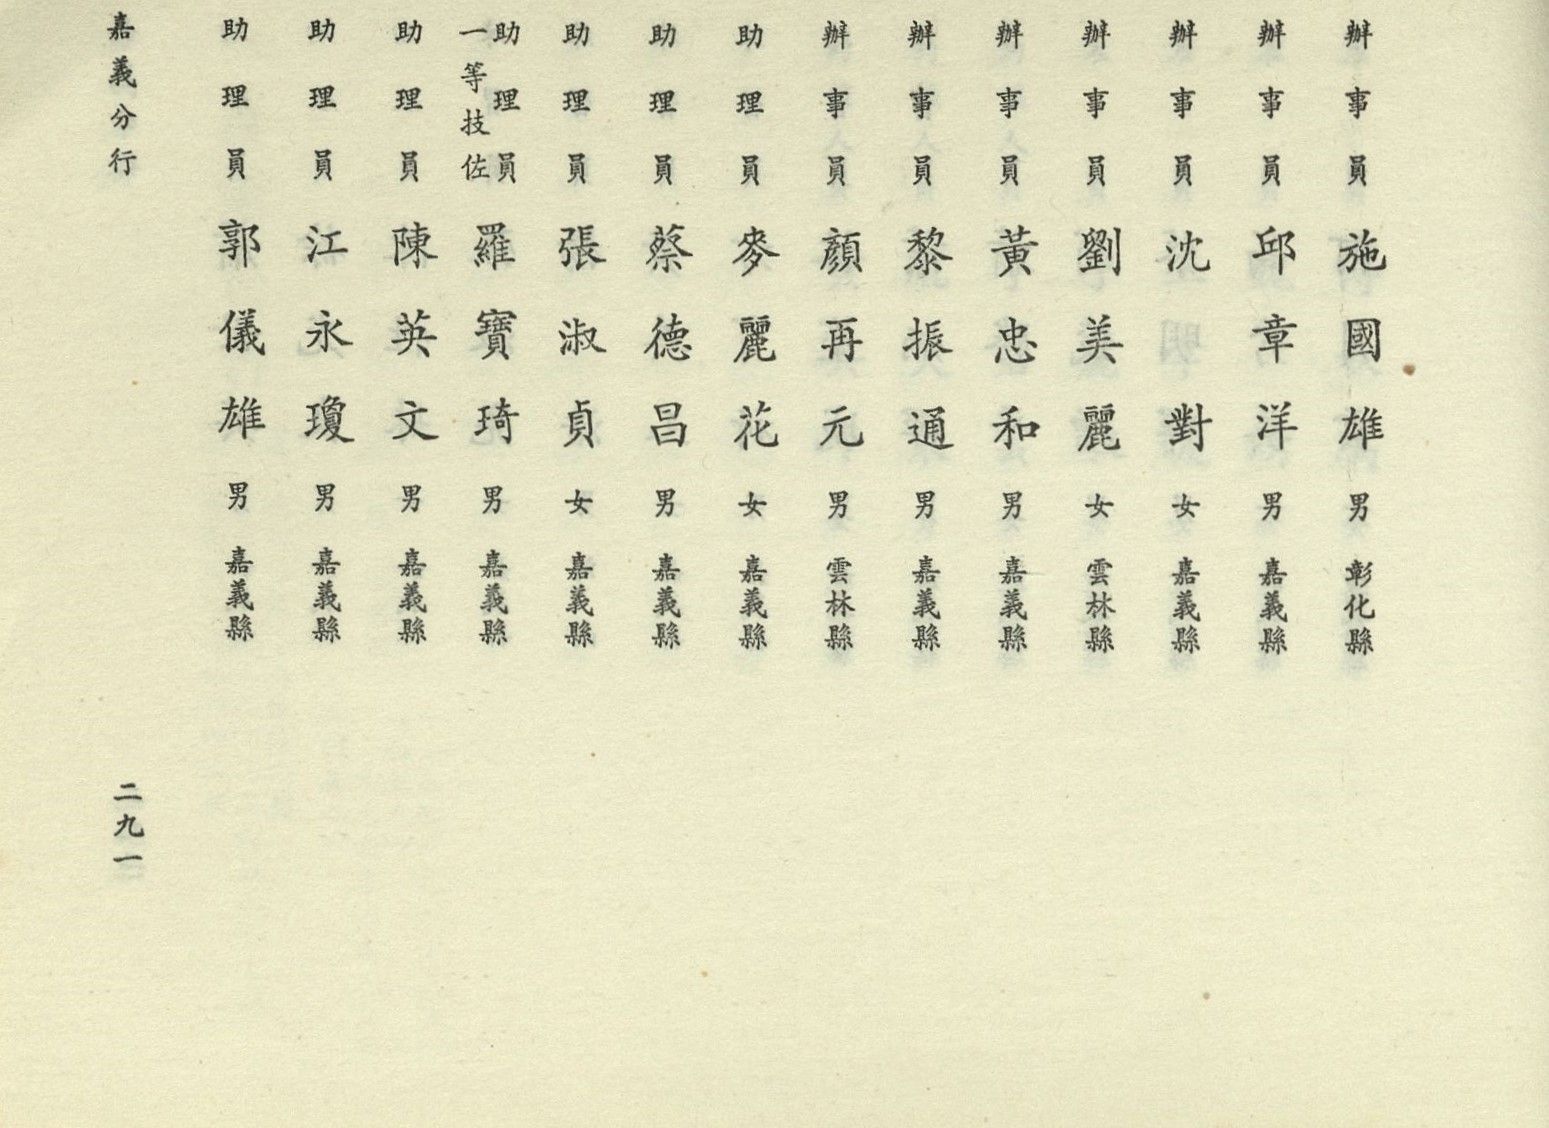 辦事員 施國雄 男 彰化縣
辦事員 邱章洋 男 嘉義縣
辦事員 沈對 女 嘉義縣
辦事員 劉美麗 女 雲林縣
辦事員 黃忠和 男 嘉義縣
辦事員 黎振通 男 嘉義縣
辦事員 顏再元 男 雲林縣
助理員 麥麗花 女 嘉義縣
助理員 蔡德昌 男 嘉義縣
助理員 張淑貞 女 嘉義縣
助理員 一等技佐 羅寶琦 男 嘉義縣
助理員 陳英文 男 嘉義縣
助理員 江永瓊 男 嘉義縣
助理員 郭儀雄 男 嘉義縣
嘉義分行
二九一